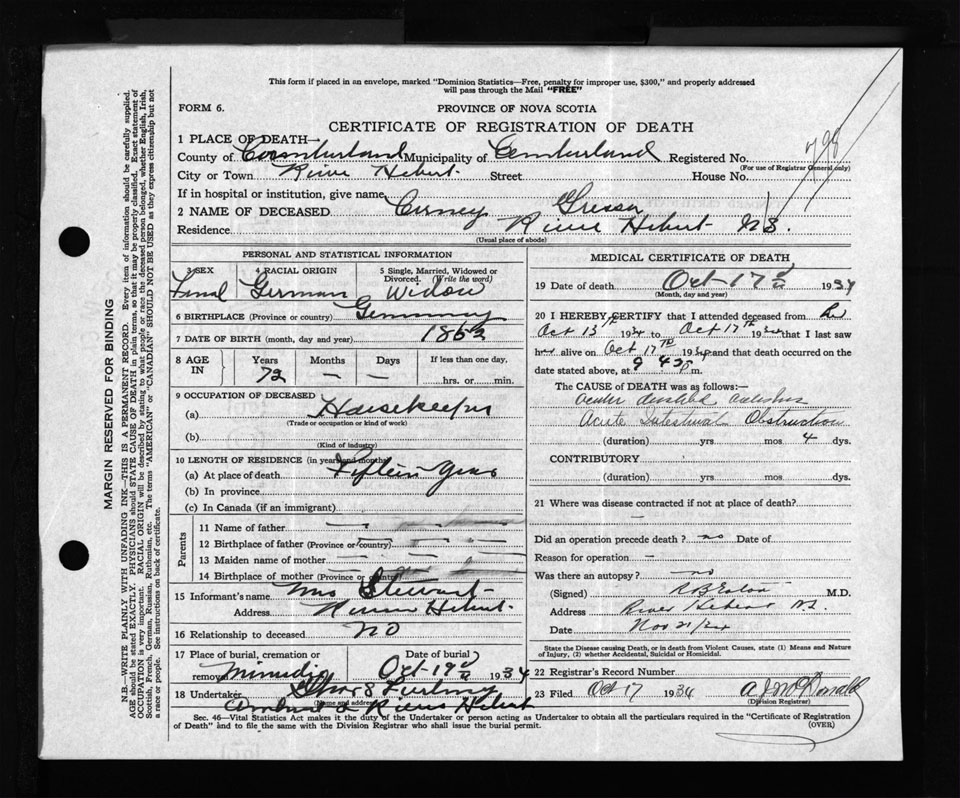 This form if placed in an envelope, marked "Dominion Statistics—Free, penalty for improper use, $300," and properly addressed
will pass through the Mail "FREE"
FORM 6.
PROVINCE OF NOVA SCOTIA
CERTIFICATE OF REGISTRATION OF DEATH
798
1 PLACE OF DEATH
County of Cumberland Municipality of Cumberland Registered No.
(For use of Registrar General only)
City or Town River Hebert Street House No.
If in hospital or institution, give name
2 NAME OF DECEASED
Residence River Hebert N S.
(Usual place of abode)
PERSONAL AND STATISTICAL INFORMATION
3 SEX 4 RACIAL ORIGIN 5 Single, Married, Widowed or Divorced. (Write the word)
German Widow
6 BIRTHPLACE (Province or country) Germany
7 DATE OF BIRTH (month, day and year) 1862
8 AGE IN Years Months Days If less than one day,
72 — — hrs. or min.
9 OCCUPATION OF DECEASED
(a) Housekeeper
(Trade or occupation or kind of work)
(b)
(Kind of industry)
10 LENGTH OF RESIDENCE (in years and months)
(a) At place of death Fifteen years
(b) In province
(c) In Canada (if an immigrant)
Parents
11 Name of father
12 Birthplace of father (Province or country)
13 Maiden name of mother
14 Birthplace of mother (Province or country)
15 Informant's name Mrs Stewart
Address River Hebert
16 Relationship to deceased NO
17 Place of burial, cremation or removal Date of burial
Minudie Oct 19th 1934
18 Undertaker Furlong
(Name and address)
Amherst & River Hebert
MEDICAL CERTIFICATE OF DEATH
19 Date of death Oct 17th 1934
(Month, day and year)
20 I HEREBY CERTIFY that I attended deceased from
Oct 13th 1934 to Oct 17th 1934 that I last saw
her alive on Oct 17th 1934 and that death occurred on the
date stated above, at 9 m.
The CAUSE OF DEATH was as follows:—
Acute
Acute Intestinal Obstruction
(duration) yrs mos 4 dys.
CONTRIBUTORY
(duration) yrs. mos. dys.
21 Where was disease contracted if not at place of death?
Did an operation precede death? no Date of
Reason for operation —
Was there an autopsy? no
(Signed) R B Eaton M.D.
Address River Hebert N.S.
Date Nov 21/34
State the Disease causing Death, or in death from Violent Causes, state (1) Means and Nature
of Injury, (2) whether Accidental, Suicidal or Homicidal.
22 Registrar's Record Number
23 Filed Oct 17 1934 A J McDonald
(Division Registrar)
Sec. 46—Vital Statistics Act makes it the duty of the Undertaker or person acting as Undertaker to obtain all the particulars required in the "Certificate of Registration
of Death" and to file the same with the Division Registrar who shall issue the burial permit. (OVER)
MARGIN RESERVED FOR BINDING
N.B.—WRITE PLAINLY WITH UNFADING INK—THIS IS A PERMANENT RECORD. Every item of information should be carefully supplied.
AGE should be stated EXACTLY. PHYSICIANS should STATE CAUSE OF DEATH in plain terms, so that it may be properly classified. Exact statement of
OCCUPATION is very important. RACIAL ORIGIN will be described by stating to what people or race the deceased person belonged, whether English, Irish,
Scottish, French, German, Russian, Ruthenian, etc. The terms "AMERICAN" or "CANADIAN" SHOULD NOT BE USED as they express citizenship but not
a race or people. See instructions on back of certificate.